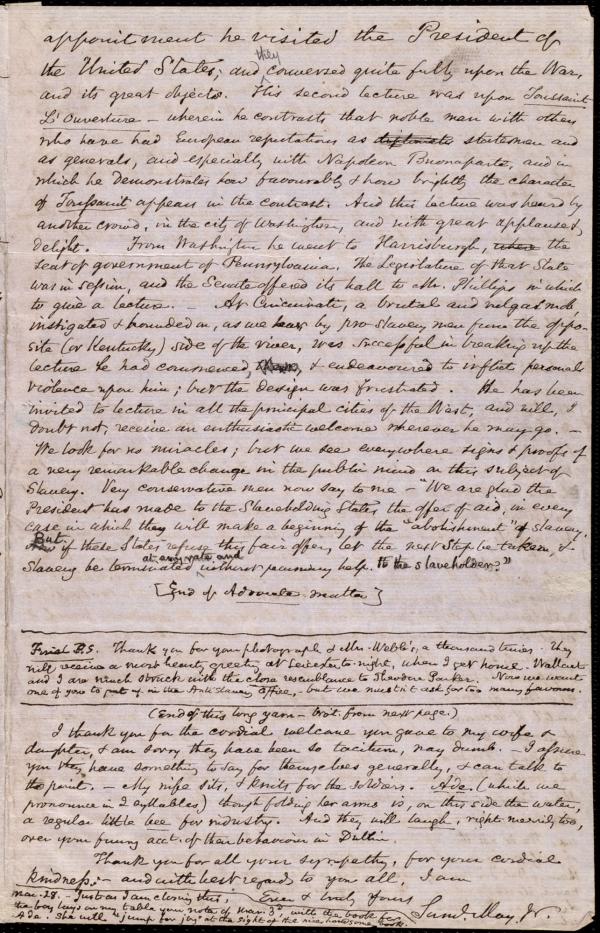 appointment he visited the President of
the United States; and they conversed quite fully upon the War,
and its great objects. His second lecture was upon Toussaint
L'Ouverture – wherein he contrasts that noble man with others
who have had European reputations as diplomats statesmen and
as generals, and especially with Napoleon Buonaparte, and in
which he demonstrates how favourably & how brightly the character
of Toussaint appears in the contrast. And this lecture was heard by
another crowd, in the city of Washington, and with great applause &
delight. From Washington he went to Harrisburgh, where the
seat of government of Pennsylvania. The Legislature of that State
was in session, and the Senate offered its hall to Mr. Phillips in which
to give a lecture. – At Cincinnati, a brutal and vulgar mob,
instigated & hounded on, as we hear by pro-slavery men from the oppo-
site (or Kentucky) side of the river, was successful in breaking up the
lecture he had commenced, & endeavoured to inflict personal
violence upon him; but the design was frustrated. He has been
invited to lecture in all the principal cities of the West, and will, I
doubt not, receive an enthusiastic welcome wherever he may go. –
We look for no miracles; but we see everywhere signs & proofs of
a very remarkable change in the public mind on this subject of
Slavery. Very conservative men now say to me – "We are glad the
President has made to the Slaveholding States the offer of aid, in every
case in which they will make a beginning of the "abolishment" of Slavery.
But if these States refuse this fair offer, let the next step be taken, &
Slavery be terminated at any rate and without pecuniary help to the slaveholder."
[End of Advocate matter]
Finish P.S. Thank you for your photograph & Mrs. Webb's, a thousand times. They
will receive a most hearty greeting at Leicester to-night, when I get home. Wallcut
and I are much struck with the close resemblance to Theodore Parker. Now we want
one of you to put up in the Anti Slavery Office, – but we mustn't ask for too many favours.
(End of this long yarn – bro't from next page.)
I thank you for the cordial welcome you gave to my wife &
daughter, & am sorry they have been so taciturn, nay dumb. – I assure
you they have something to say for themselves generally, & can talk to
the point. – My wife sits, & knits for the soldiers. Ade. (which we
pronounce in 2 syllables) though folding her arms so, on this side the water,
a regular little bee for industry. And they will laugh, right merrily too,
over your funny acct. of their behaviour in Dublin.
Thank you for all your sympathy, for your cordial
kindness – and with best regards to you all, I am
Ever & truly Yours
Saml. May, Jr.
Mar. 28. – Just as I am closing this,
the boy lays on my table your note of Mar. 3d, with the book for
Ade. She will "jump for joy" at the sight of the nice handsome book.